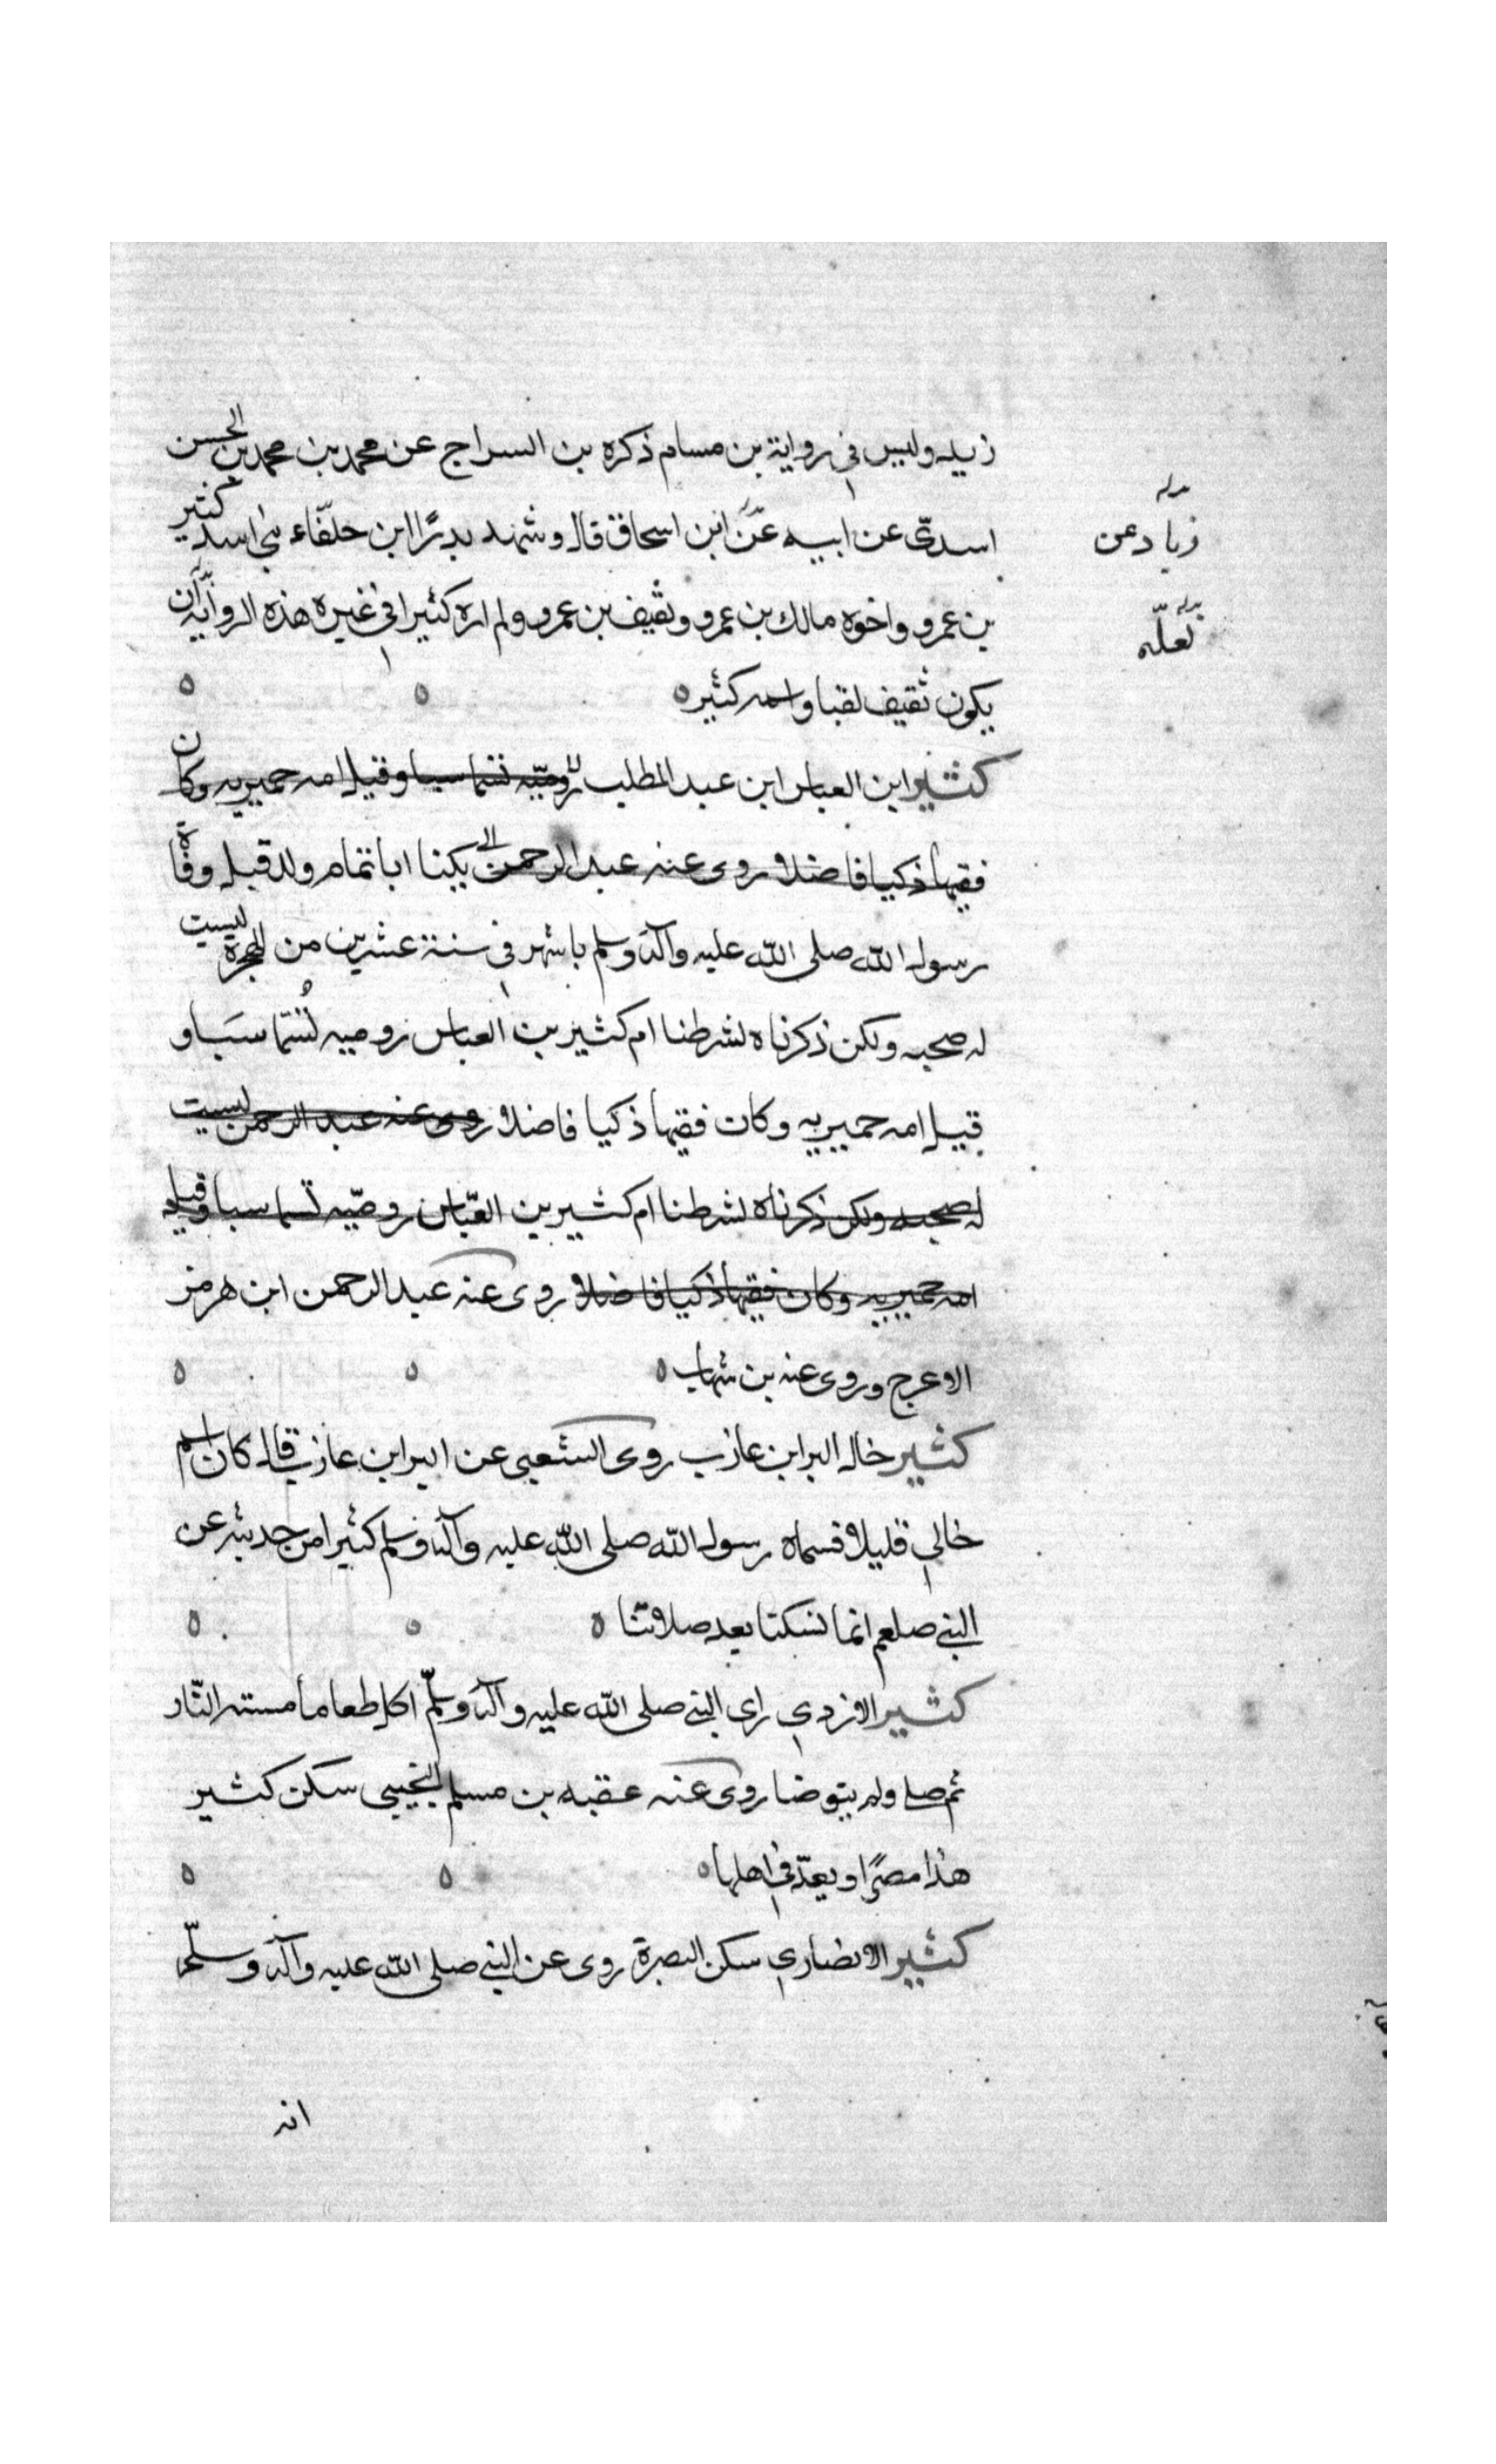 زيله وليس في رواية بن مسام ذكره بن السراج عن محمد بن محمد بن الحسن
اسدىّ عن ابيه عن ابن اسحاق قال وشهد بدرًا ابن حلفّاء بني اسد كثير
زياد عن
بن عمرو واخوه مالك بن عمرو وثقيف بن عمرو ولم اره كثيرا في غيره هذه الرواية ان
لعلّه
يكون ثقيف لقبا واسمه كثير ه ه ه
كثير ابن العباس ابن عبد المطلب روميّه تسما سبا وقيل امه حميريه وكان
فقيها ذكيا فاضلا روى عنه عبد الرحمن يكنا ابا تمام ولد قبل وفاة
رسول الله صلى الله عليه وآله وسلم باشهر في سنة عشرين من الهجرة ليست
له صحبه ولكن ذكرناه لشرطنا ام كثير بن العباس روميه تُسَمّا سَبَا و
قيل امه حميريه وكان فقيها ذكيا فاضلا روى عنه عبد الرحمن ليست
له صحبه ولكن ذكرناه لشرطنا ام كثير بن العبّاس روميّه تسما سبا وقيل
امه حميريه وكان فقيها ذكيا فاضلا روى عنه عبد الرحمن ابن هرمز
الاعرج وروى عنه بن شهاب ه ه ه
كثير خال البرا بن عازب روى الشعبي عن البرا بن عازب قال كان اسم
خالي قليلا فسماه رسول الله صلى الله عليه وآله وسلم كثيرا من حديثه عن
النبي صلعم انما نسكنا بعد صلاتنا ه ه ه
كثير الازدي راى النبي صلى الله عليه وآله وسلّم اكل طعاما مسته النّار
ثم صلى ولم يتوضا روى عنه عقبه بن مسلم التجيبي سكن كثير
هذا مصرًا ويعدّ في اهلها ه ه ه
كثير الانصاري سكن البصرة روى عن النبي صلى الله عليه وآله وسلّم
انه